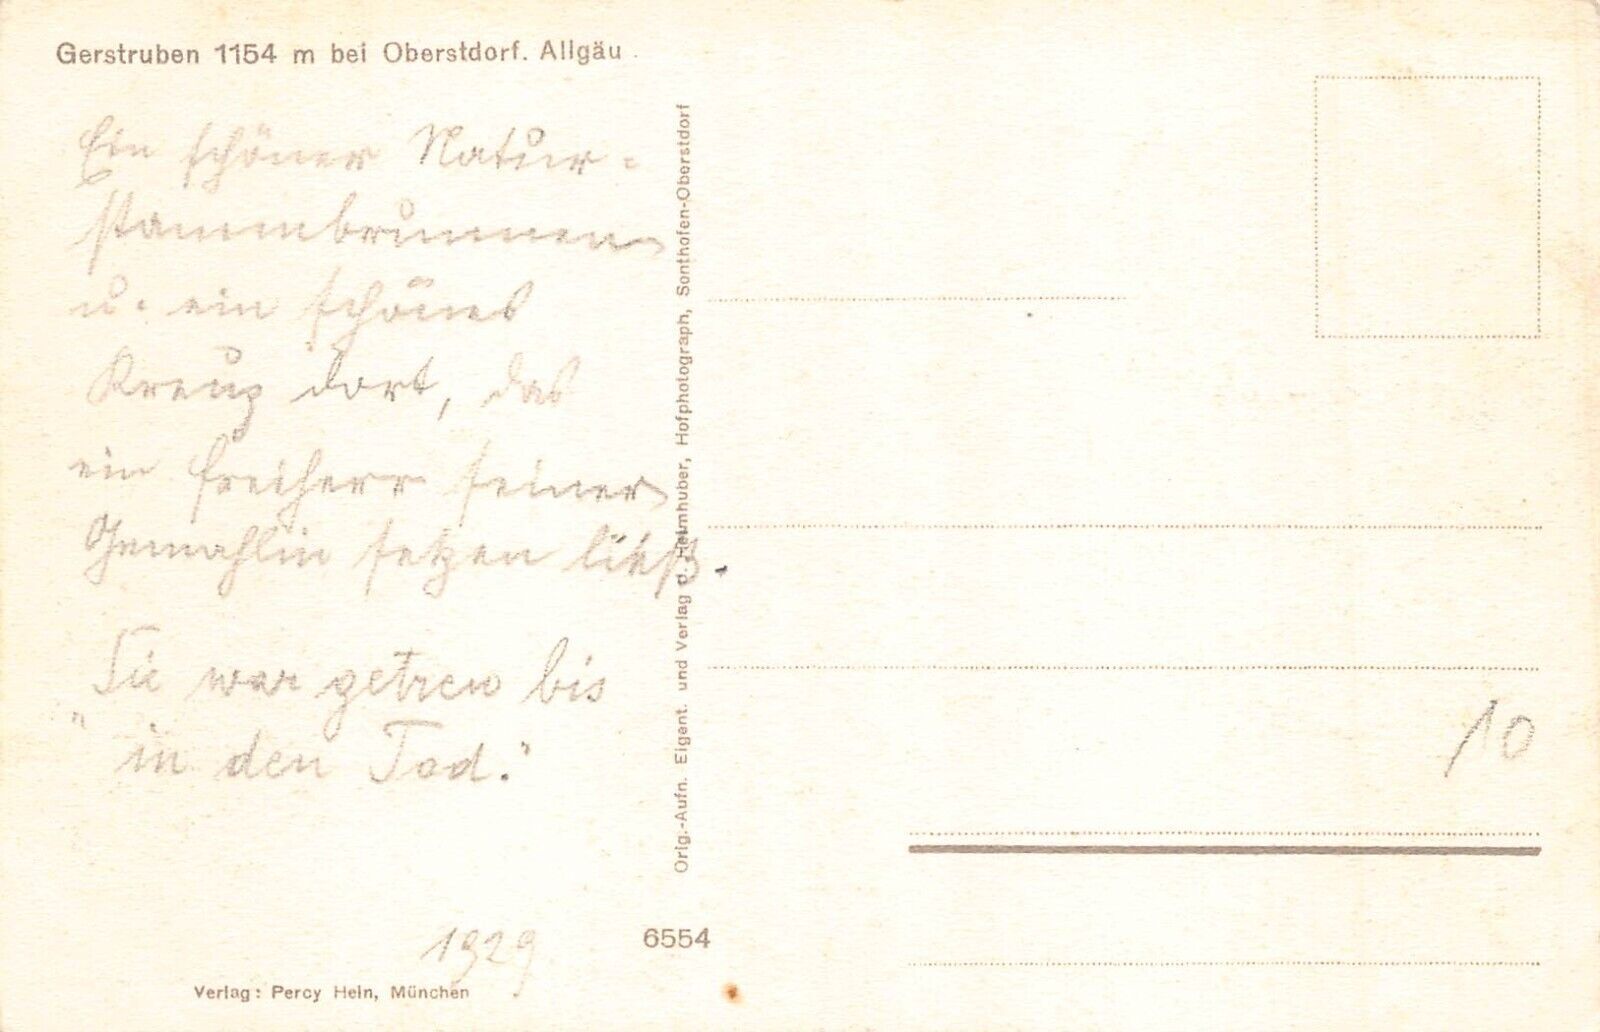 Gerstruben 1154 m bei Oberstdorf. Allgäu.
Ein schöner Natur-
stammbrunnen
u. ein schönes
Kreuz dort, das
ein Freiherr seiner
Gemahlin setzen ließ.
Sie war getreu bis
"in den Tod."
1929
Verlag: Percy Hein, München
6554
Orig.-Aufn. Eigent. und Verlag v. Heimhuber, Hofphotograph, Sonthofen-Oberstdorf
10